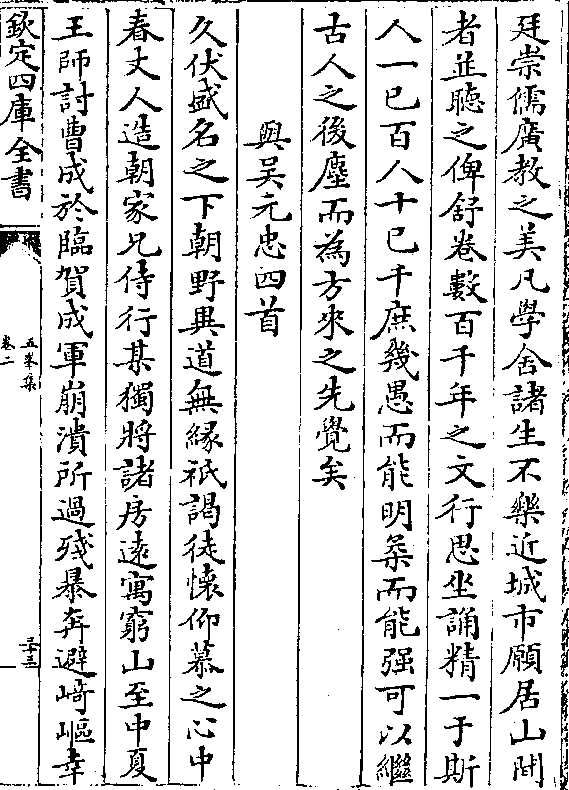 廷崇儒廣教之美凡學舍諸生不樂近城市願居山間
者並聽之俾舒卷數百千年之文行思坐誦精一于斯
人一已百人十已千庶幾愚而能明柔而能强可以繼
古人之後塵而為方來之先覺矣
與吴元忠四首
久伏盛名之下朝野異道無緣祇謁徒懷仰慕之心中
春丈人造朝家兄侍行某獨將諸房逺寓窮山至中夏
王師討曹成於臨賀成軍崩潰所過殘暴奔避﨑嶇幸
欽定四庫全書
五峯集
卷二
三十三